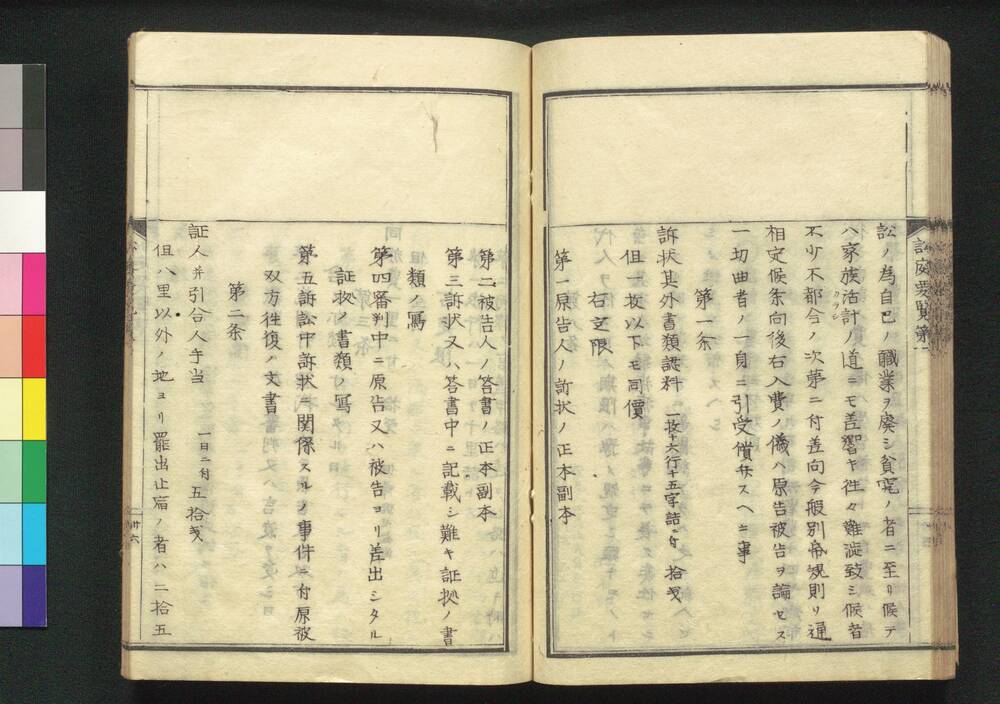 訟庭要覧第一
訟ノ為自己ノ職業ヲ廃シ貧窮ノ者ニ至リ候テ
ハ家族活計ノ道ニモ差響キ往々難渋致シ候者
不少不都合ノ次第ニ付差向今般別冊規則リ通
相定候条向後右入費ノ儀ハ原告被告ヲ論セス
一切曲者ノ一身ニ引受償却スヘキ事
第一条
訴状其外書類認料 一枚十六行十五字詰ニ付 拾戔
但一枚以下モ同價
右之限
第一原告人ノ訴状ノ正本副本
第二被告人ノ答書ノ正本副本
第三訴状又ハ答書中ニ記載シ難キ証拠ノ書
類ノ寫
第四審判中ニ原告又ハ被告ヨリ差出シタル
証拠ノ書類ノ寫
第五訴訟中訴状ニ関係スルノ事件ニ付原被
双方往復ノ文書
第二条
証人并引合人手当 一日ニ付 五拾戔
但八里以外ノ地ヨリ罷出止宿ノ者ハ二拾五
卅六